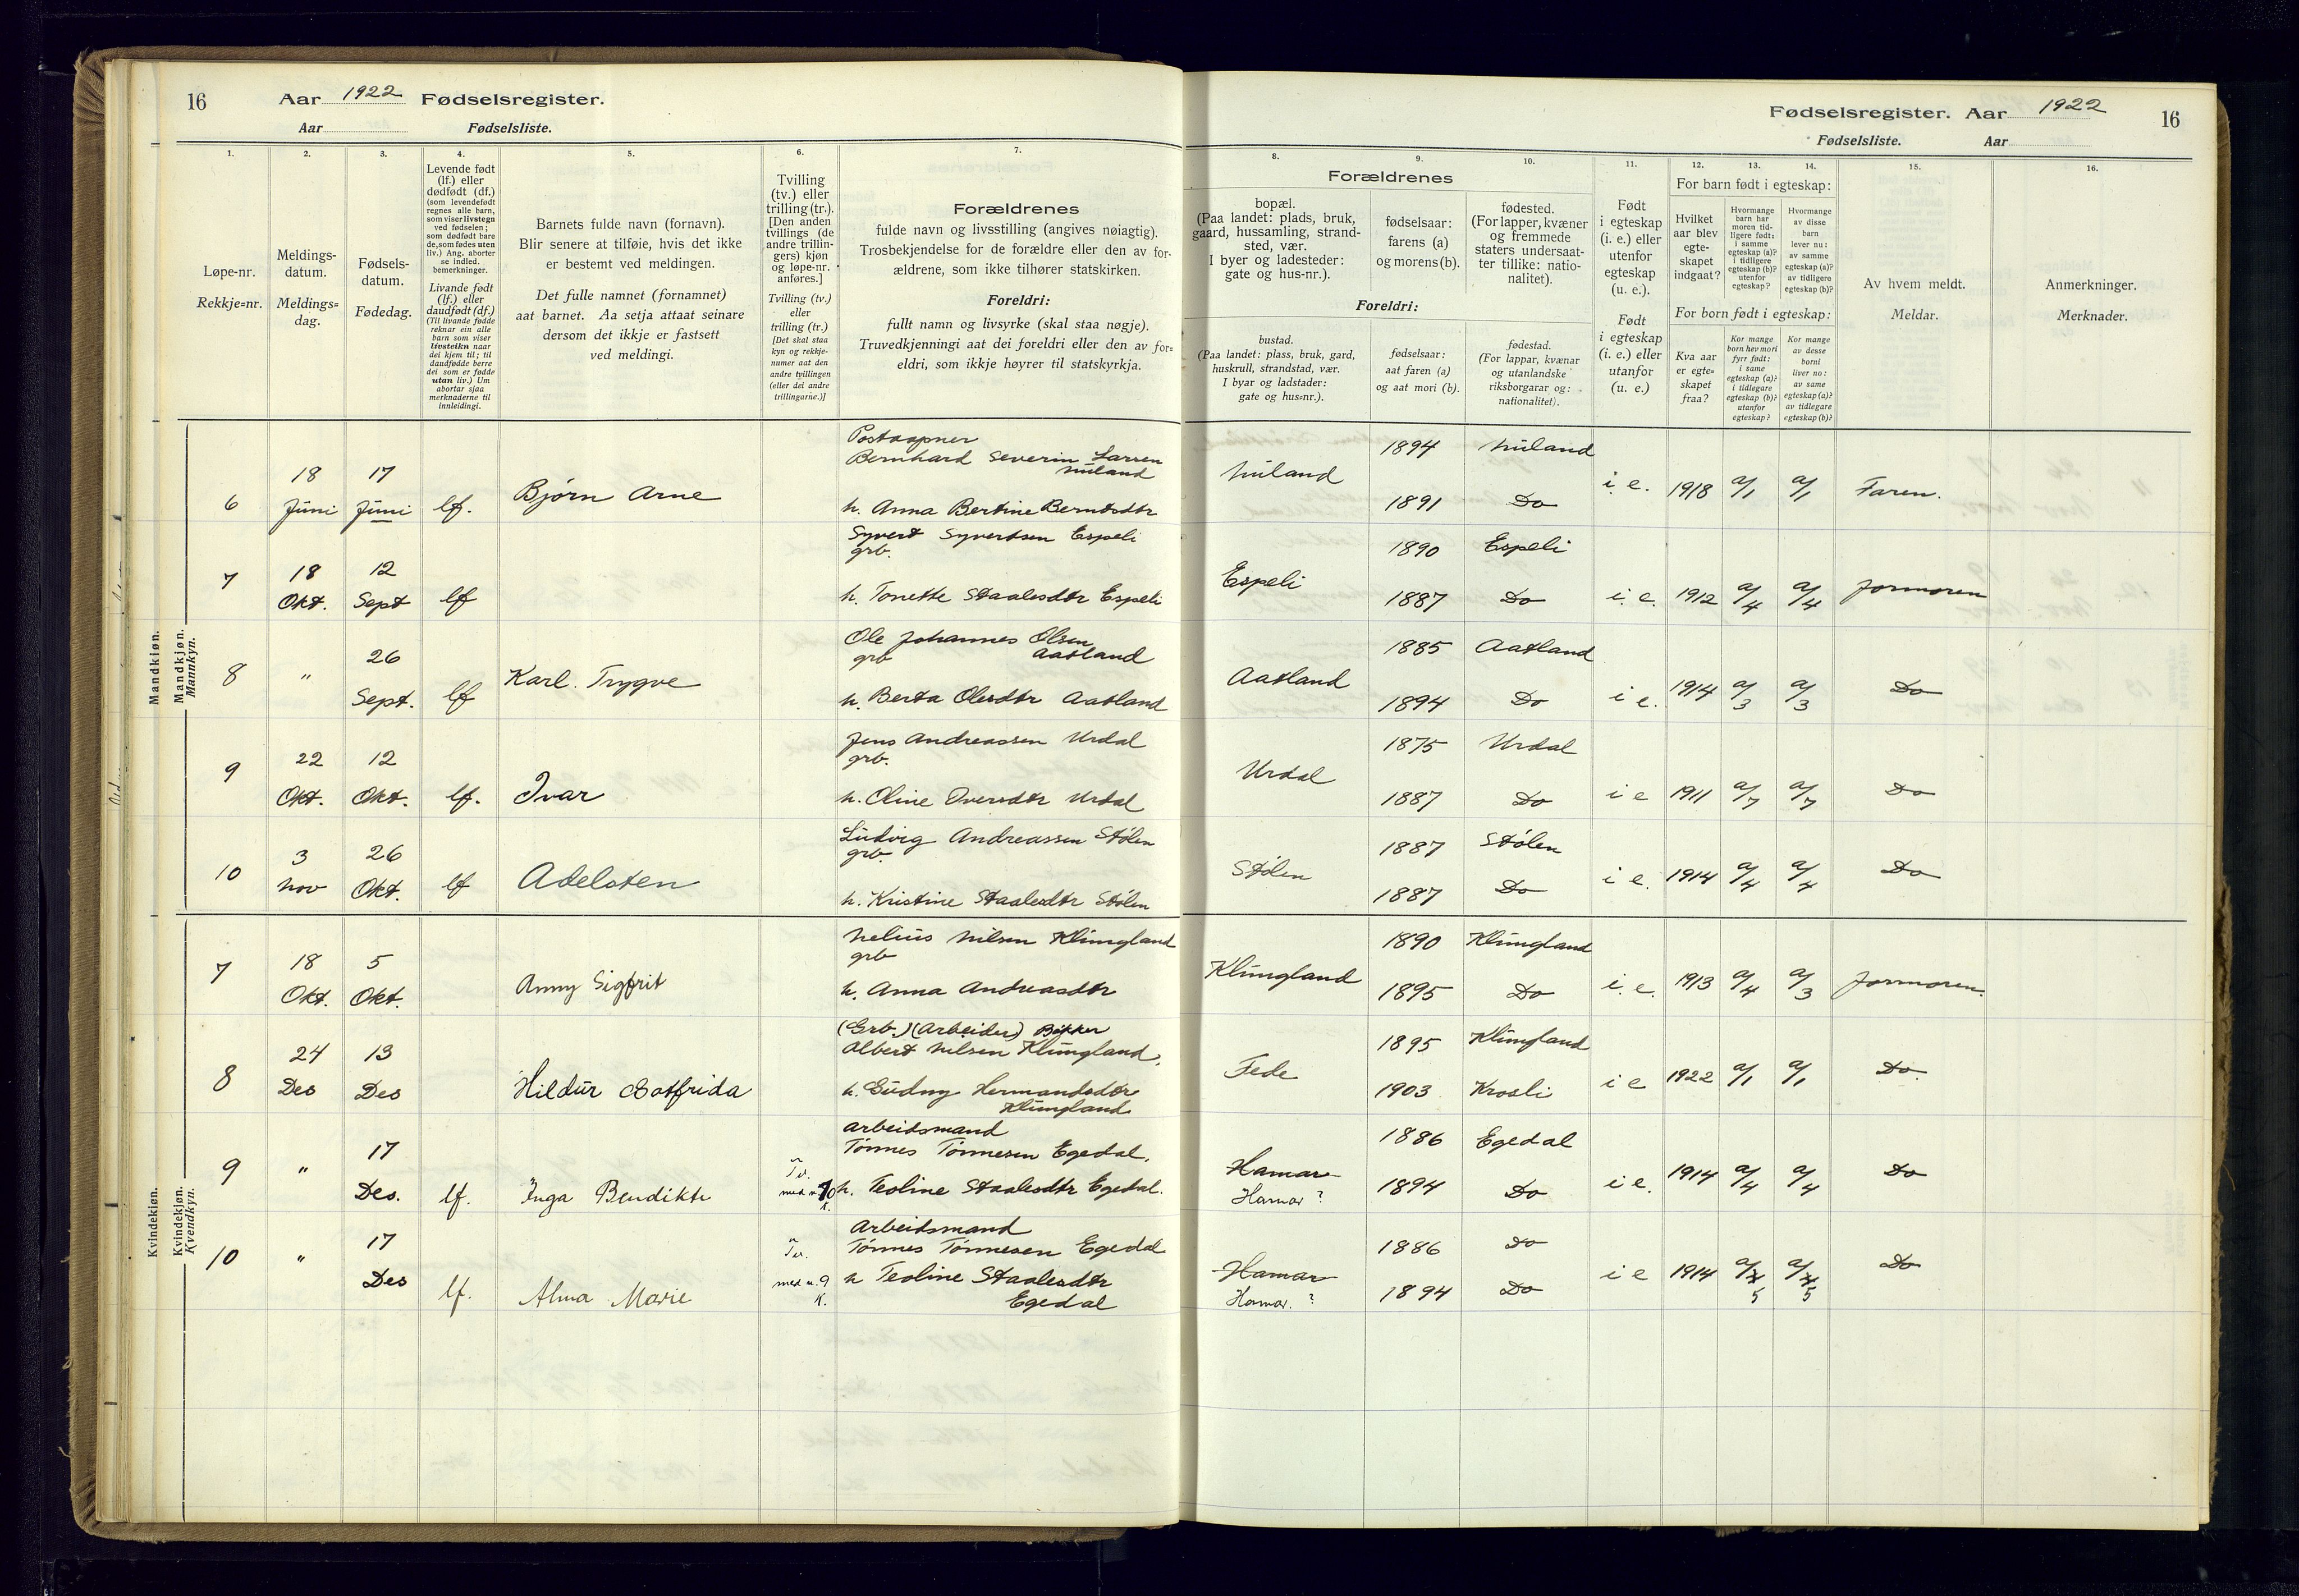 16 Aar 1922 Fødselsregister.
Aar Fødselsliste.
Fødselsregister. Aar 1922 16
Fødselsliste. Aar
1. 2. 3. 4. 5. 6. 7.
Løpe-nr.
Rekkje=nr.
Meldings-
datum.
Meldings=
dag.
Fødsels-
datum.
Fødedag.
Levende født
(lf.) eller
dødfødt (df.)
(som levendefødt
regnes alle barn,
som viser livstegn
ved fødselen;
som dødfødt bare
de, som fødes uten
liv.) Ang. aborter
se indled.
bemerkninger.
Livande født
(lf.) eller
daudfødt (df.)
(Til livande fødde
reknar ein alle
barn som viser
livsteikn naar
dei kjem til; til
daudfødde berre
dei som er fødde
utan liv.) Um
abortar sjaa
merknaderne til
innleidingi.
Barnets fulde navn (fornavn).
Blir senere at tilføie, hvis det ikke
er bestemt ved meldingen.
Det fulle namnet (fornamnet)
aat barnet. Aa setja attaat seinare
dersom det ikkje er fastsett
ved meldingi.
Tvilling
(tv.) eller
trilling (tr.).
[Den anden
tvillings (de
andre trillin-
gers) kjøn
og løpe-nr.
anføres.]
Tvilling (tv.)
eller
trilling (tr.)
[Det skal staa
kyn og rekkje-
numer aat den
andre tvillingen
(eller dei andre
trillingarne.)]
Forældrenes
fulde navn og livsstilling (angives nøiagtig).
Trosbekjendelse for de forældre eller den av for-
ældrene, som ikke tilhører statskirken.
Foreldri:
fullt namn og livsyrke (skal staa nøgje).
Truvedkjenningi aat dei foreldri eller den av for=
eldri, som ikkje høyrer til statskyrkja.
8. 9. 10. 11. 12. 13. 14. 15. 16.
Forældrenes
bopæl.
(Paa landet: plads, bruk,
gaard, hussamling, strand-
sted, vær.
I byer og ladesteder:
gate og hus-nr.).
fødselsaar:
farens (a)
og morens (b).
fødested.
(For lapper, kvæner
og fremmede
staters undersaat-
ter tillike: natio-
nalitet).
Foreldri:
bustad.
(Paa landet: plass, bruk, gard,
huskrull, strandstad, vær.
I byar og ladstader:
gate og hus=nr.).
fødselsaar:
aat faren (a)
og aat mori (b).
fødestad.
(For lappar, kvænar
og utanlandske
riksborgarar og:
nationalitet).
Født
i egteskap
(i. e.) eller
utenfor
egteskap
(u. e.).
Født
i egteskap
(i. e.) eller
utanfor
(u. e.)
For barn født i egteskap:
Hvilket
aar blev
egte-
skapet
indgaat?
Hvormange
barn har
moren tid-
ligere født:
i samme
egteskap (a)?
i tidligere
egteskap (b)?
utenfor
egteskap?
Hvormange
av disse
barn
lever nu:
av samme
egteskap (a)?
av tidligere
egteskap (b)?
For born født i egteskap:
Kva aar
er egte=
skapet
fraa?
Kor mange
born hev mori
fyrr født:
i same
egteskap (a)?
i tidlegare
egteskap (b)?
utanfor
egteskap?
Kor mange
av desse
borni
liver no:
av same
egteskap (a)?
av tidlegare
egteskap (b)?
Av hvem meldt.
Meldar.
Anmerkninger.
Merknader.
Mandkjøn.
Mandkjøn.
Mannkyn.
Postaapner
Bernhard Severin Larsen
Nuland
6 18 Juni 17 Juni lf. Bjørn Arne h. Anna Bertine Berntsdtr
Nuland 1894 Nuland
1891 Do i. e. 1918 a/1 a/1 Faren.
Syvert Syvertsen Espeli
grb.
7 18 Okt. 12 Sept lf h. Tonette Staalesdtr Espeli
Espeli 1890 Espeli
1887 Do i. e. 1912 a/4 a/4 Jormoren
Ole Johannes Olsen
grb Aatland
8 " 26 Sept. lf Karl. Trygve h. Berta Olesdtr Aatland
Aatland 1885 Aatland
1894 Do i e. 1914 a/3 a/3 Do
Jens Andreassen Urdal
grb.
9 22 Okt. 12 Okt. lf. Ivar h. Oline Iversdtr Urdal
Urdal 1875 Urdal
1887 Do i e 1911 a/7 a/7 Do
Ludvig Andreassen Stölen
grb.
10 3 Nov 26 Okt. lf Adelsten h. Kristine Staalesdtr Stölen
Stölen 1887 Stölen
1887 Do i e. 1914 a/4 a/4 Do
Kvindekjøn.
Kvindekjøn.
Kvendkyn.
Nelius Nilsen Klungland
grb
7 18 Okt. 5 Okt. Anny Sigfrit h. Anna Andreasdtr
Klungland 1890 Klungland
1895 Do i. e. 1913 a/4 a/3 Jormoren.
(Grb.) (Arbeider) Bökker
Albert Nilsen Klungland,
8 24 Des 13 Des Hildur Sotfrida h. Gudny Hermandsdtr
Klungland
Fede 1895 Klungland
1903 Krosli i e 1922 a/1 a/1 Do.
Arbeidsmand
Tönnes Tönnesen Egedal,
9 " 17 Des. lf. Inga Bendikte Tv. med n. 10 K. h. Teoline Staalesdtr Egedal.
Hamar 1886 Egedal
Hamar ? 1894 Do i e. 1914 a/4 a/4 Do
Arbeidsmand
Tönnes Tönnesen Egedal
10 " 17 Des lf. Alma Marie Tv. med n. 9 K. h Teoline Staalesdtr
Egedal
Hamar 1886 Do
Hamar. ? 1894 Do i e 1914 a/5 a/5 Do